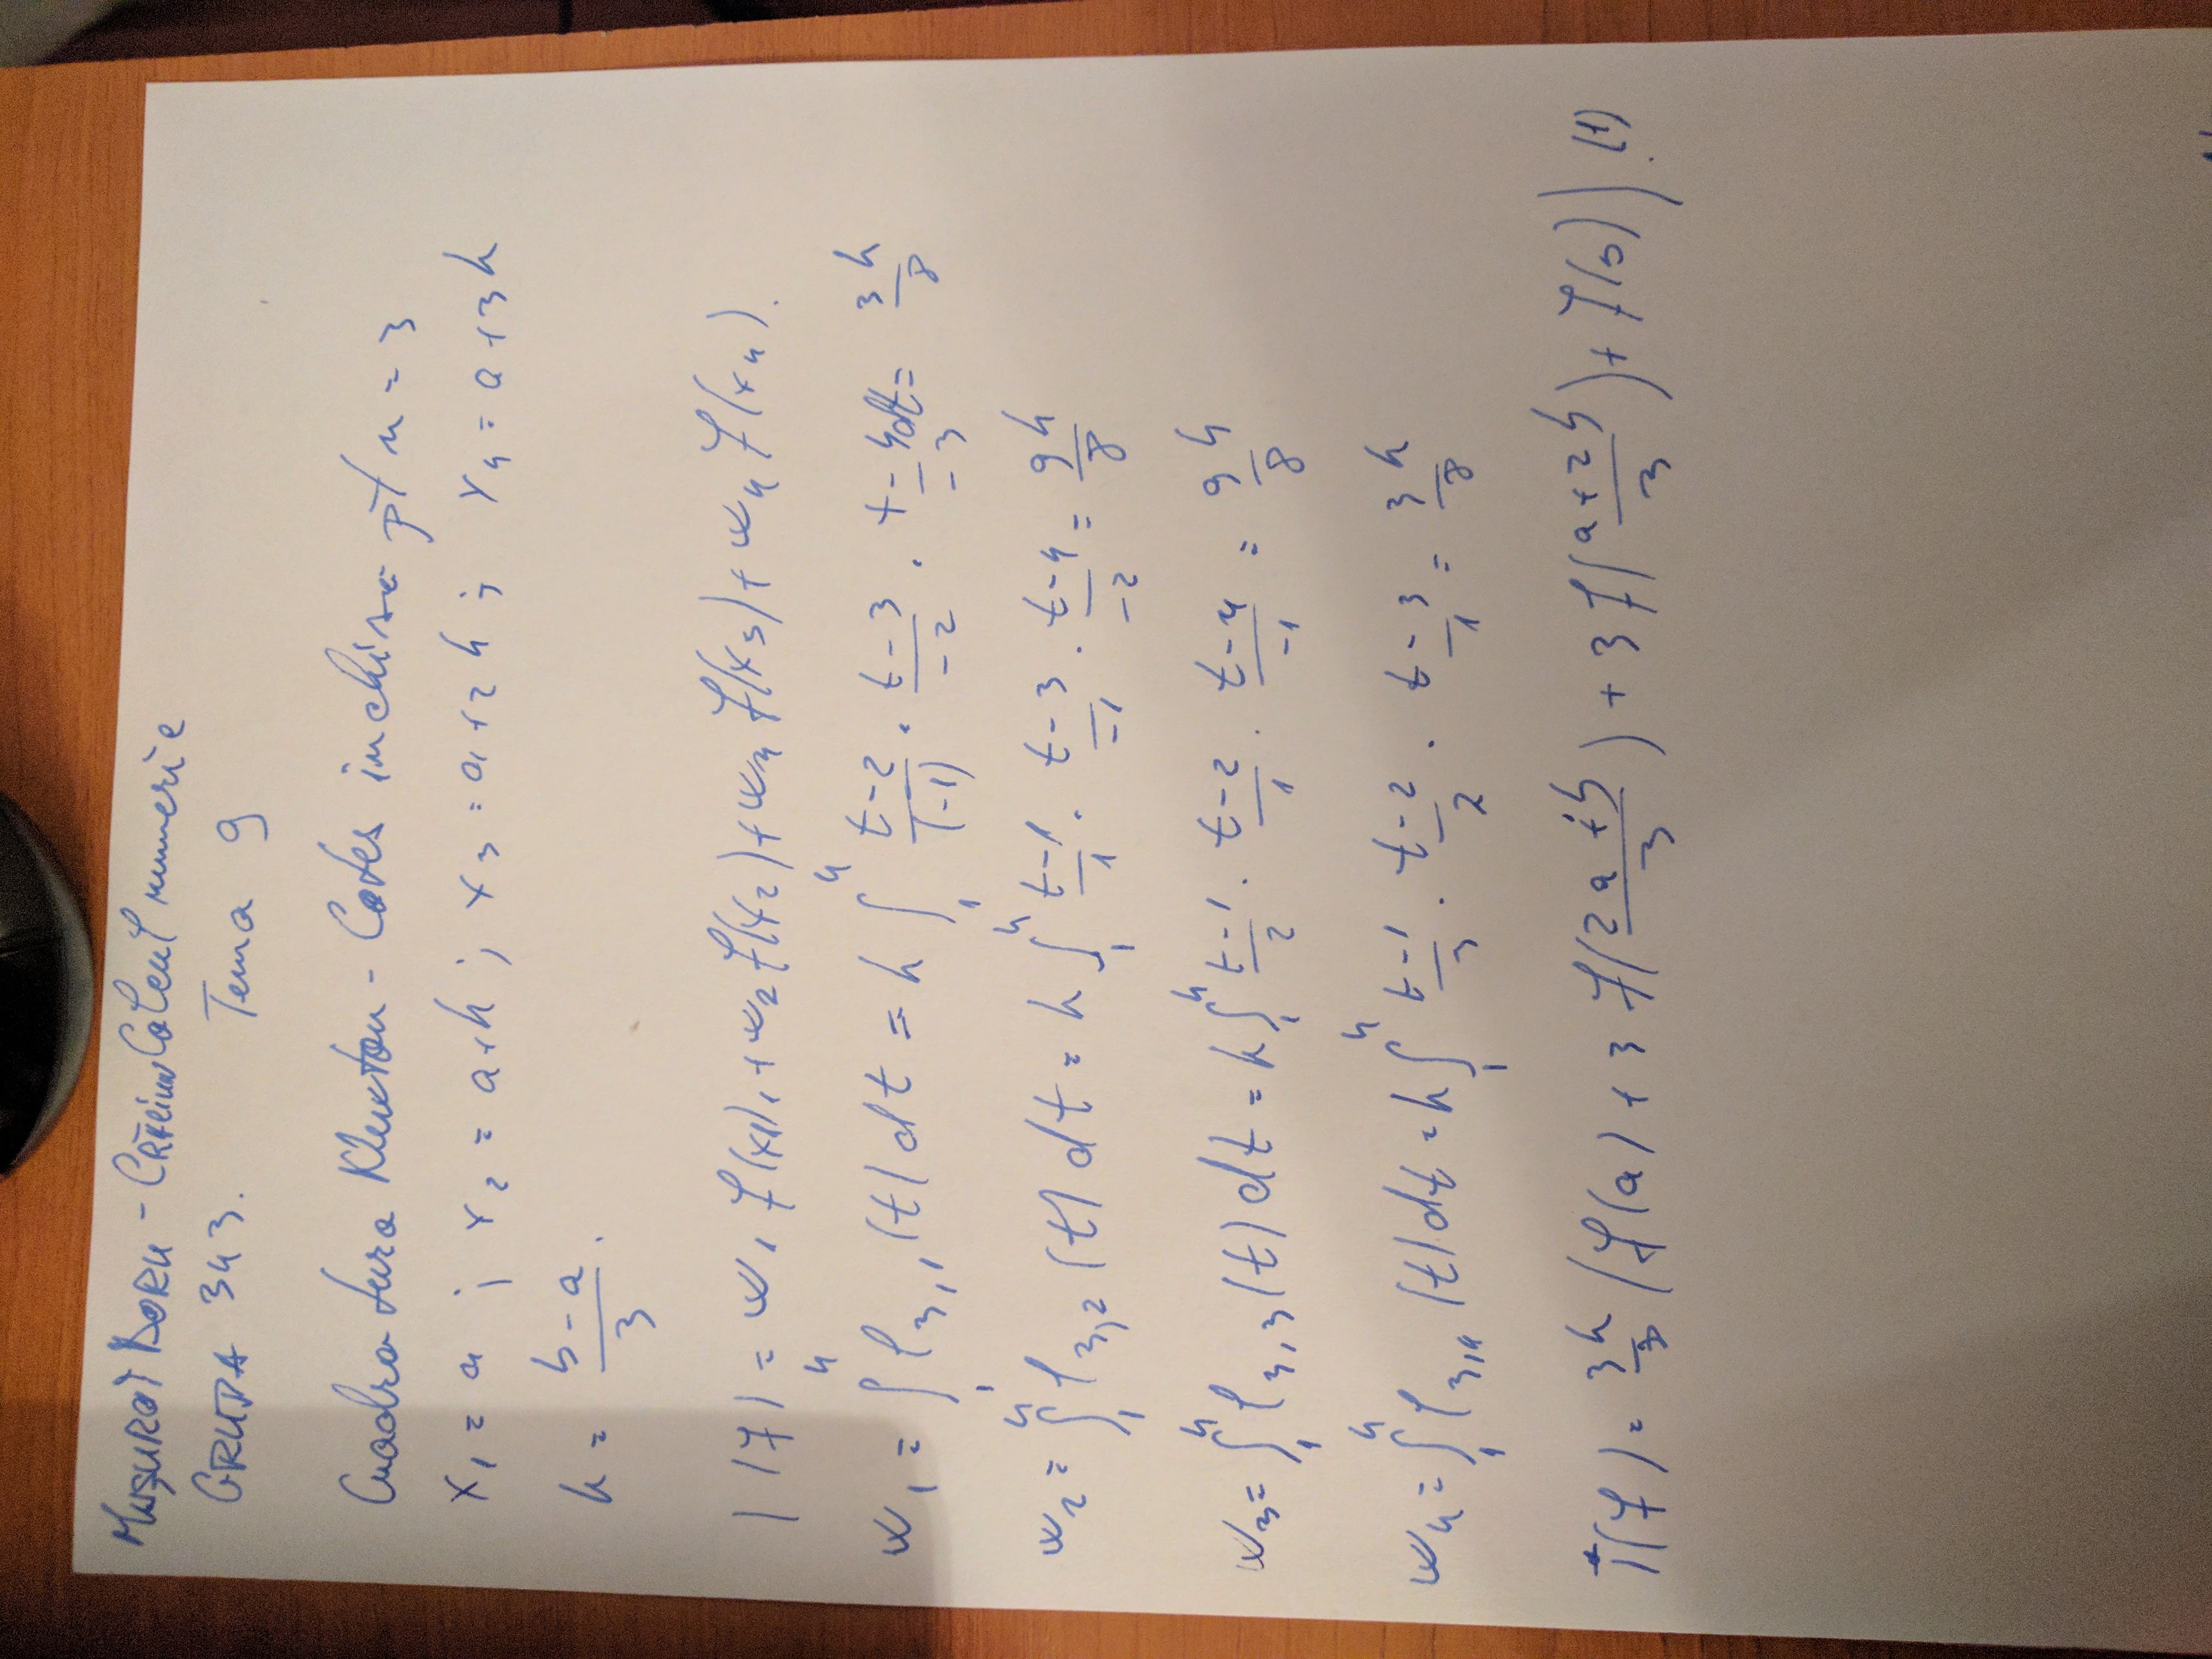 MUȘUROI DORU - CĂTĂLIN Calcul numeric
GRUPA 343. Tema 9
Cuadratura Newton-Cotes inchisa pt n=3
x₁ = a ; x₂ = a+h ; x₃ = a+2h ; x₄ = a+3h
h = (b-a)/3 .
I(f) = w₁ f(x₁) + w₂ f(x₂) + w₃ f(x₃) + w₄ f(x₄).
w₁ = ∫₁⁴ l₃,₁(t) dt = h ∫₁⁴ (t-2)/(-1) · (t-3)/(-2) · (t-4)/(-3) dt = 3h/8
w₂ = ∫₁⁴ l₃,₂(t) dt = h ∫₁⁴ (t-1)/1 · (t-3)/(-1) · (t-4)/(-2) = 9h/8
w₃ = ∫₁⁴ l₃,₃(t) dt = h ∫₁⁴ (t-1)/2 · (t-2)/1 · (t-4)/(-1) = 9h/8
w₄ = ∫₁⁴ l₃,₄(t) dt = h ∫₁⁴ (t-1)/3 · (t-2)/2 · (t-3)/1 = 3h/8
I(f) = 3h/8 (f(a) + 3 f((2a+b)/3) + 3 f((a+2b)/3) + f(b)). (1)